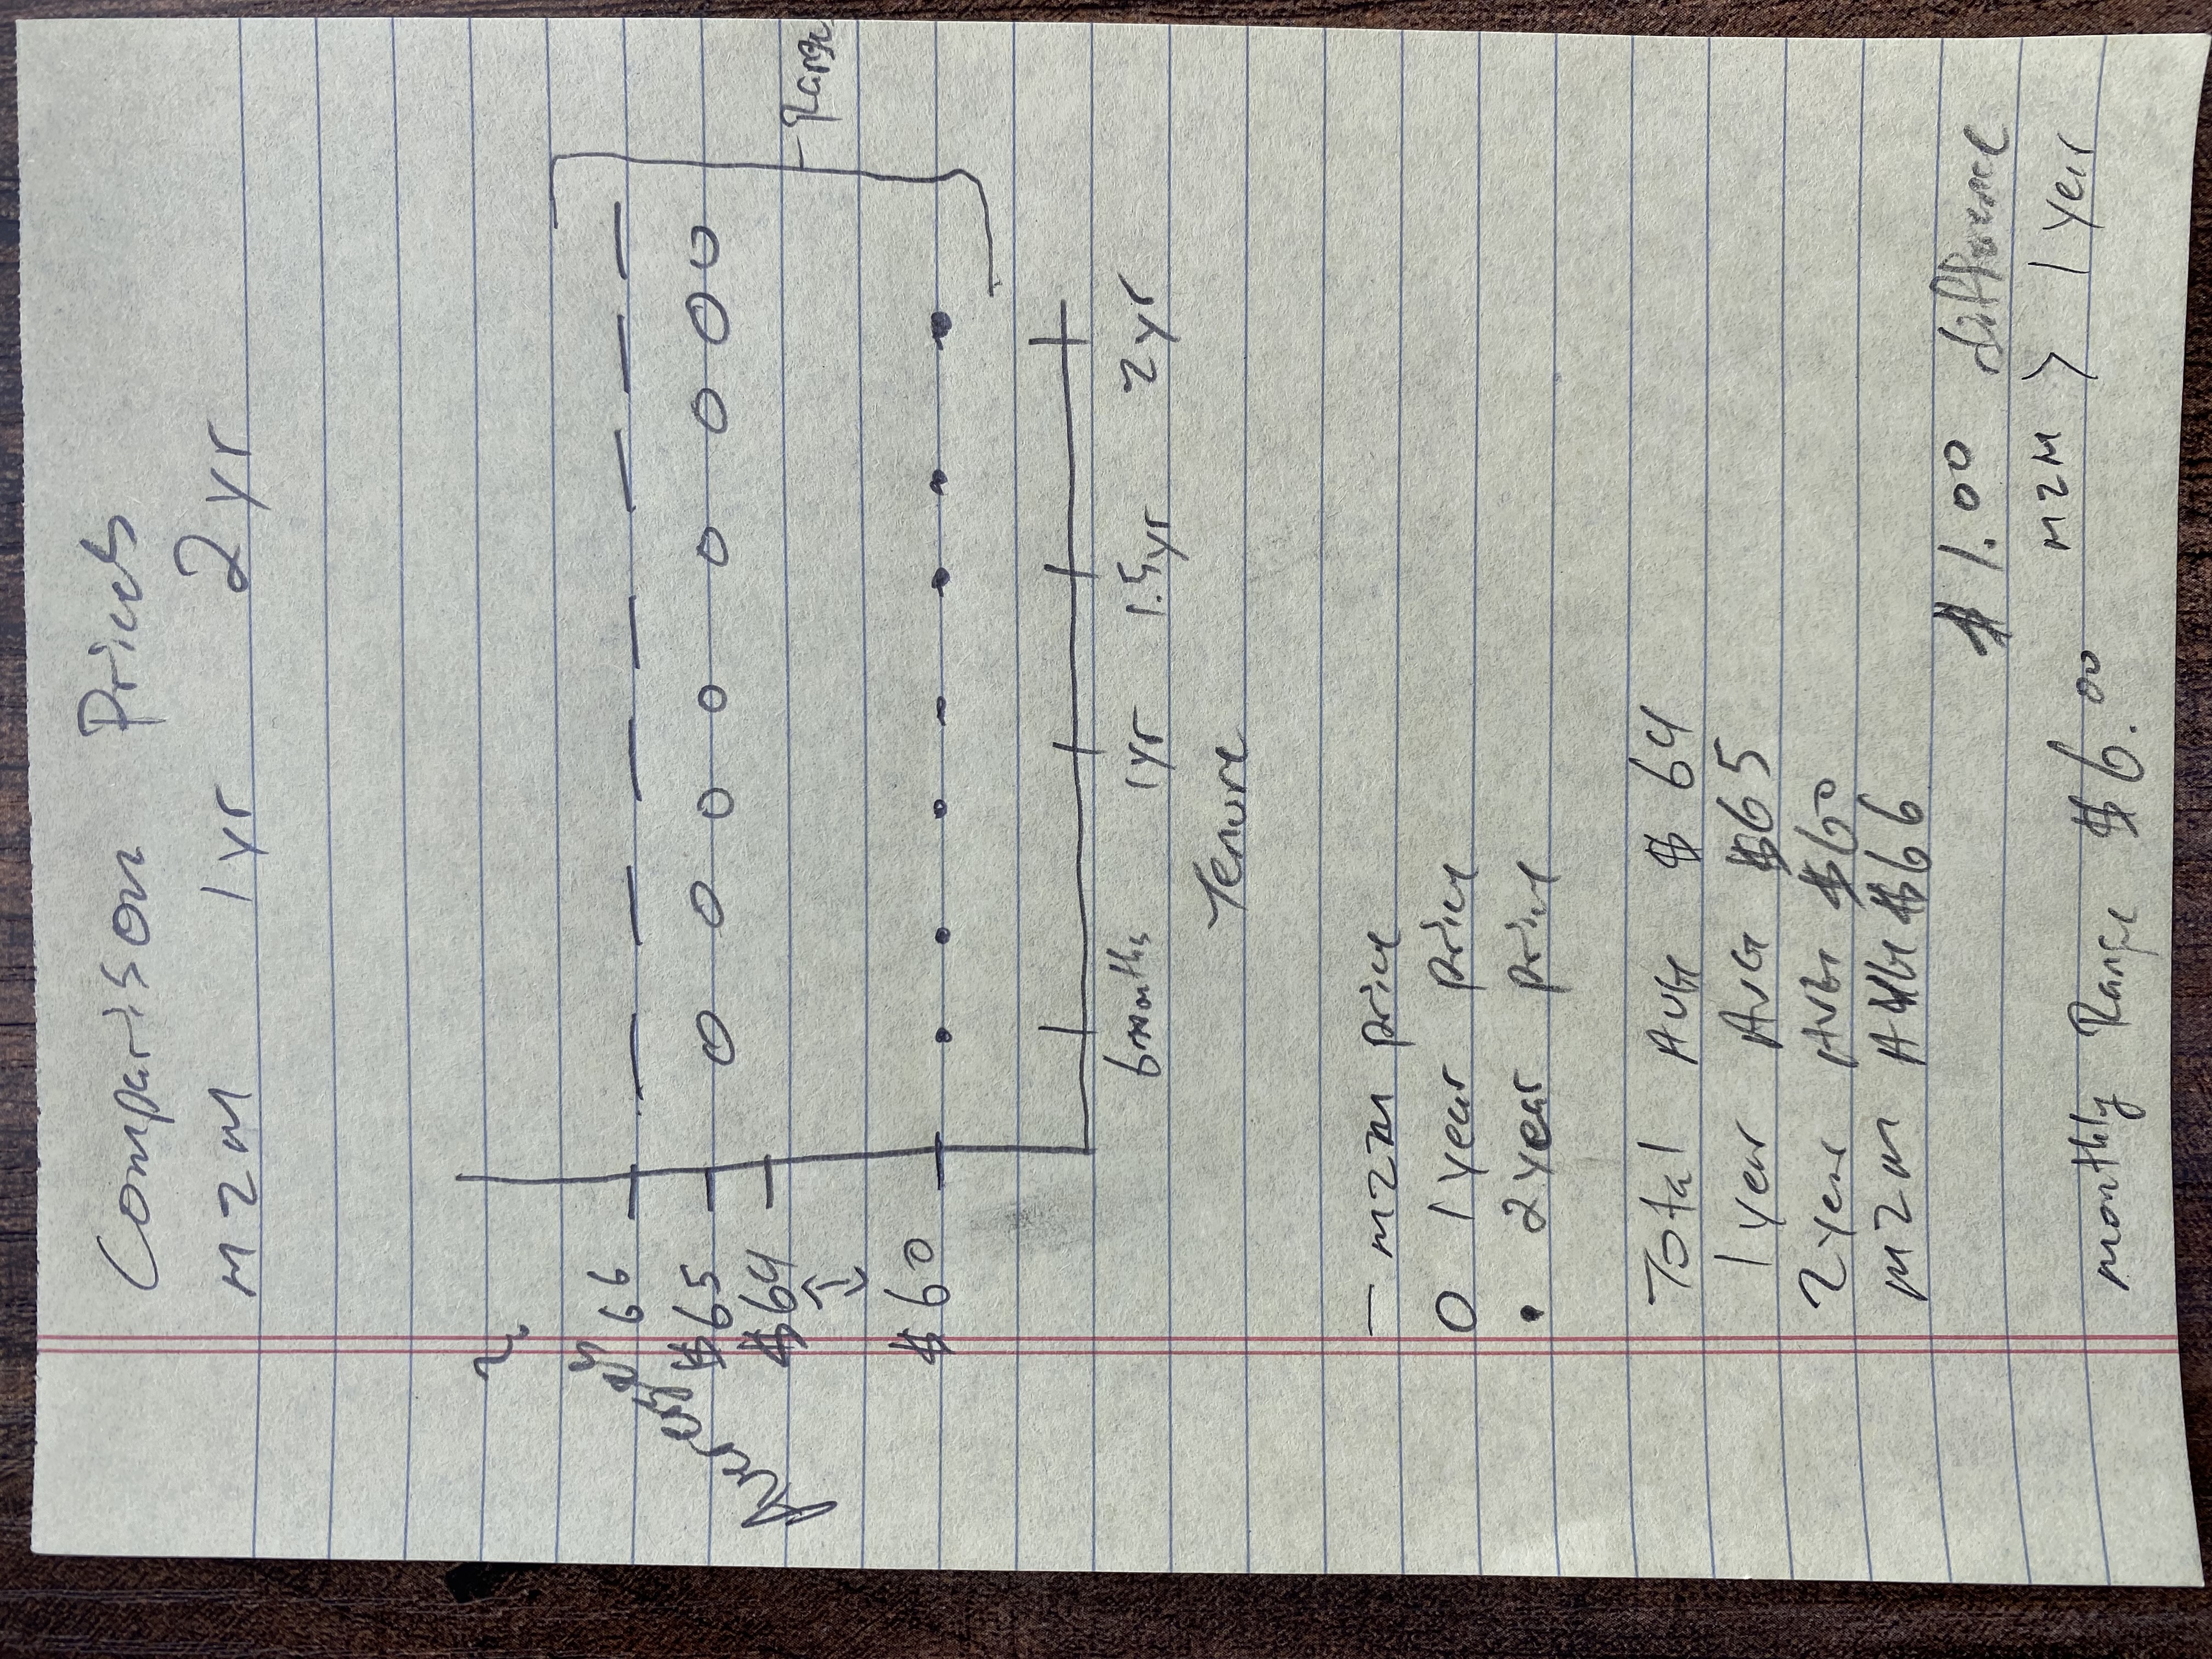 Comparison Prices
M2M 1yr 2yr
?
Averages
66
$65
$64
$60
Range
6months 1yr 1.5yr 2yr
Tenure
— M2M price
O 1 year price
• 2 year price
Total AVG $64
1 year AVG $65
2 year AVG $60
M2M AVG $66
$1.00 difference
M2M > 1 Year
monthly Range $6.00